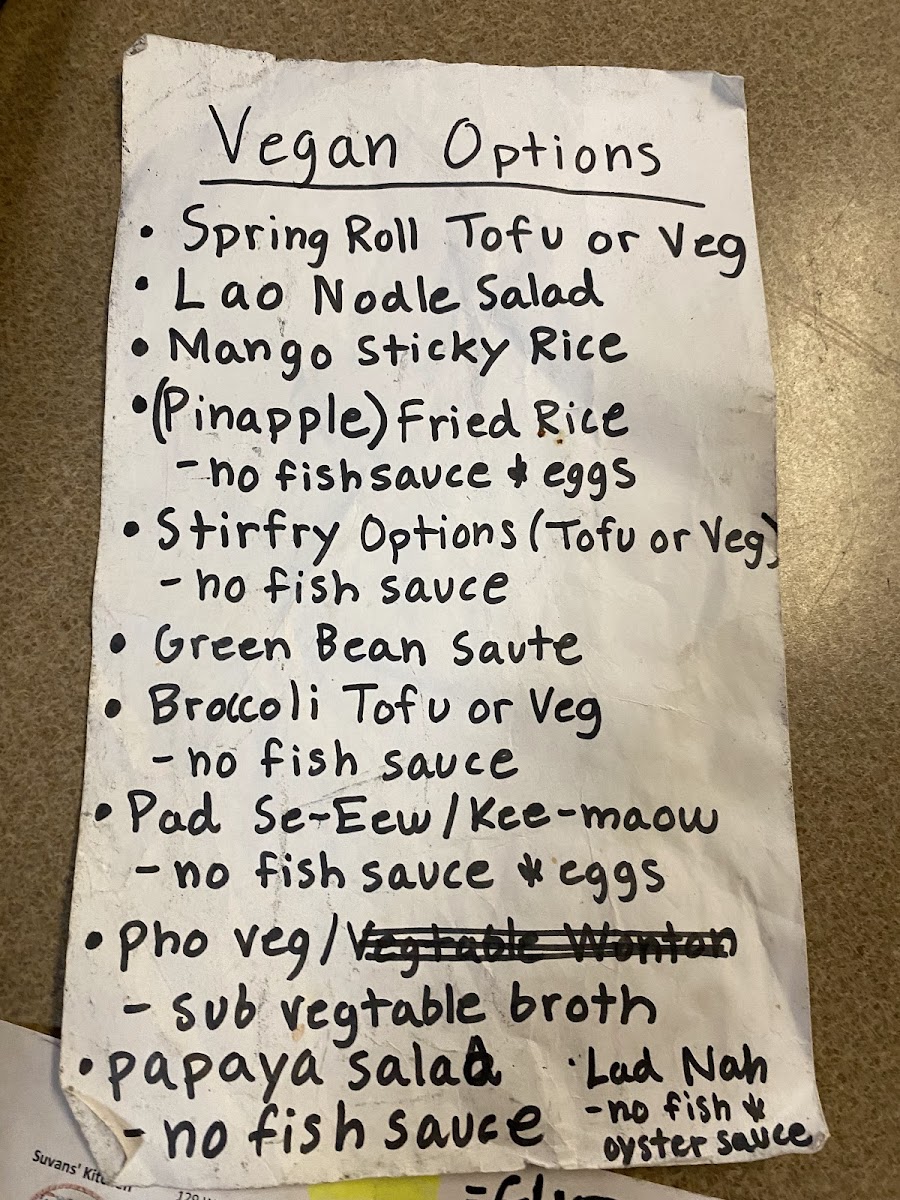 Vegan Options
• Spring Roll Tofu or Veg
• Lao Nodle Salad
• Mango Sticky Rice
• (Pinapple) Fried Rice
- no fish sauce & eggs
• Stirfry Options (Tofu or Veg)
- no fish sauce
• Green Bean Saute
• Broccoli Tofu or Veg
- no fish sauce
• Pad Se-Eew/Kee-maow
- no fish sauce & eggs
• Pho veg/Vegtable Wonton
- sub vegtable broth
• papaya salad
- no fish sauce
• Lad Nah
- no fish &
oyster sauce
Suvans' Kitchen